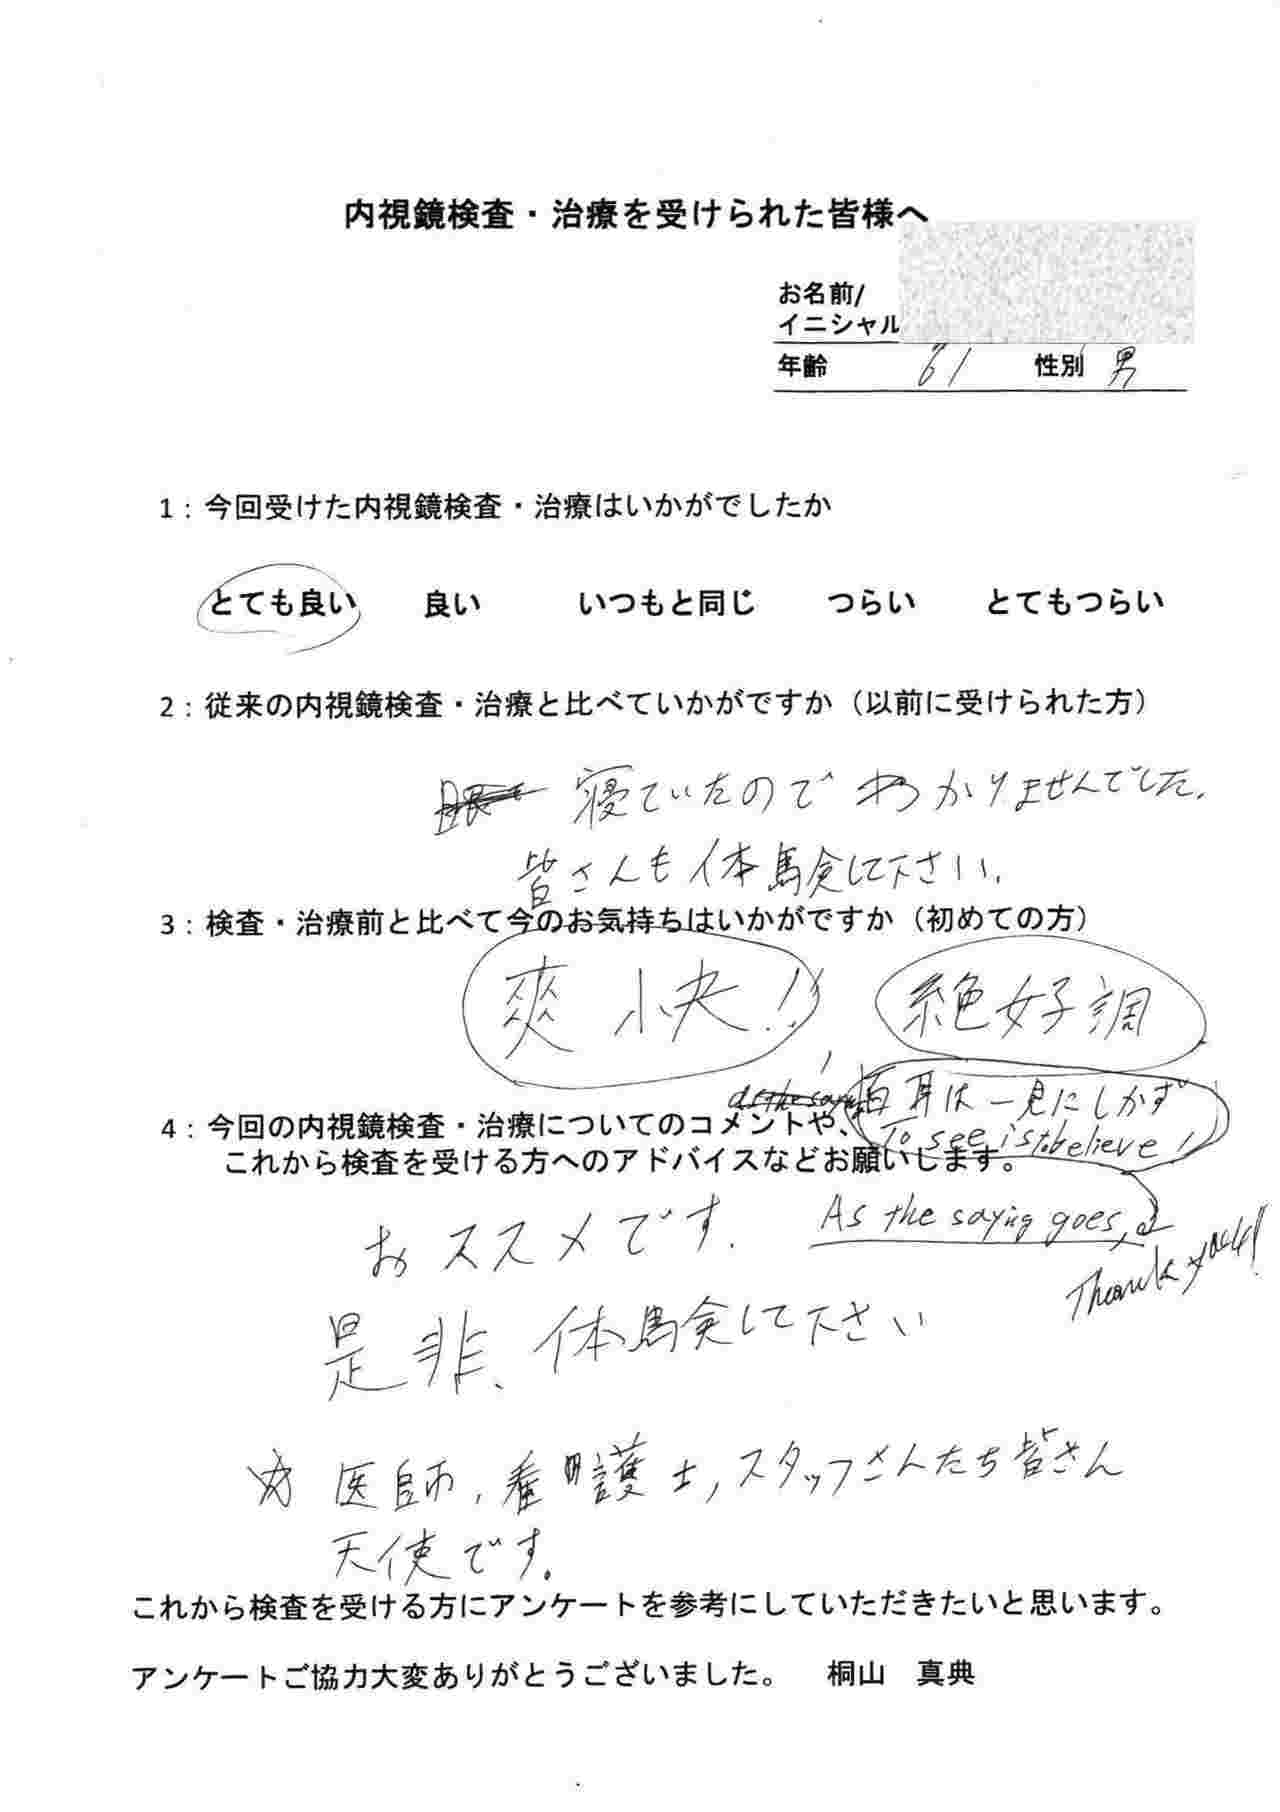 内視鏡検査・治療を受けられた皆様へ
お名前/
イニシャル
年齢 61 性別 男
1：今回受けた内視鏡検査・治療はいかがでしたか
とても良い 良い いつもと同じ つらい とてもつらい
2：従来の内視鏡検査・治療と比べていかがですか（以前に受けられた方）
寝ていたのでわかりませんでした。
皆さんも体験して下さい。
3：検査・治療前と比べて今のお気持ちはいかがですか（初めての方）
爽快！！ 絶好調
as the saying
百耳は一見にしかず
To see is to believe！
4：今回の内視鏡検査・治療についてのコメントや、
これから検査を受ける方へのアドバイスなどお願いします。
As the saying goes,
おススメです.
Thank you!!
是非、体験して下さい
☆ 医師, 看護士, スタッフさんたち皆さん
天使です。
これから検査を受ける方にアンケートを参考にしていただきたいと思います。
アンケートご協力大変ありがとうございました。 桐山 真典